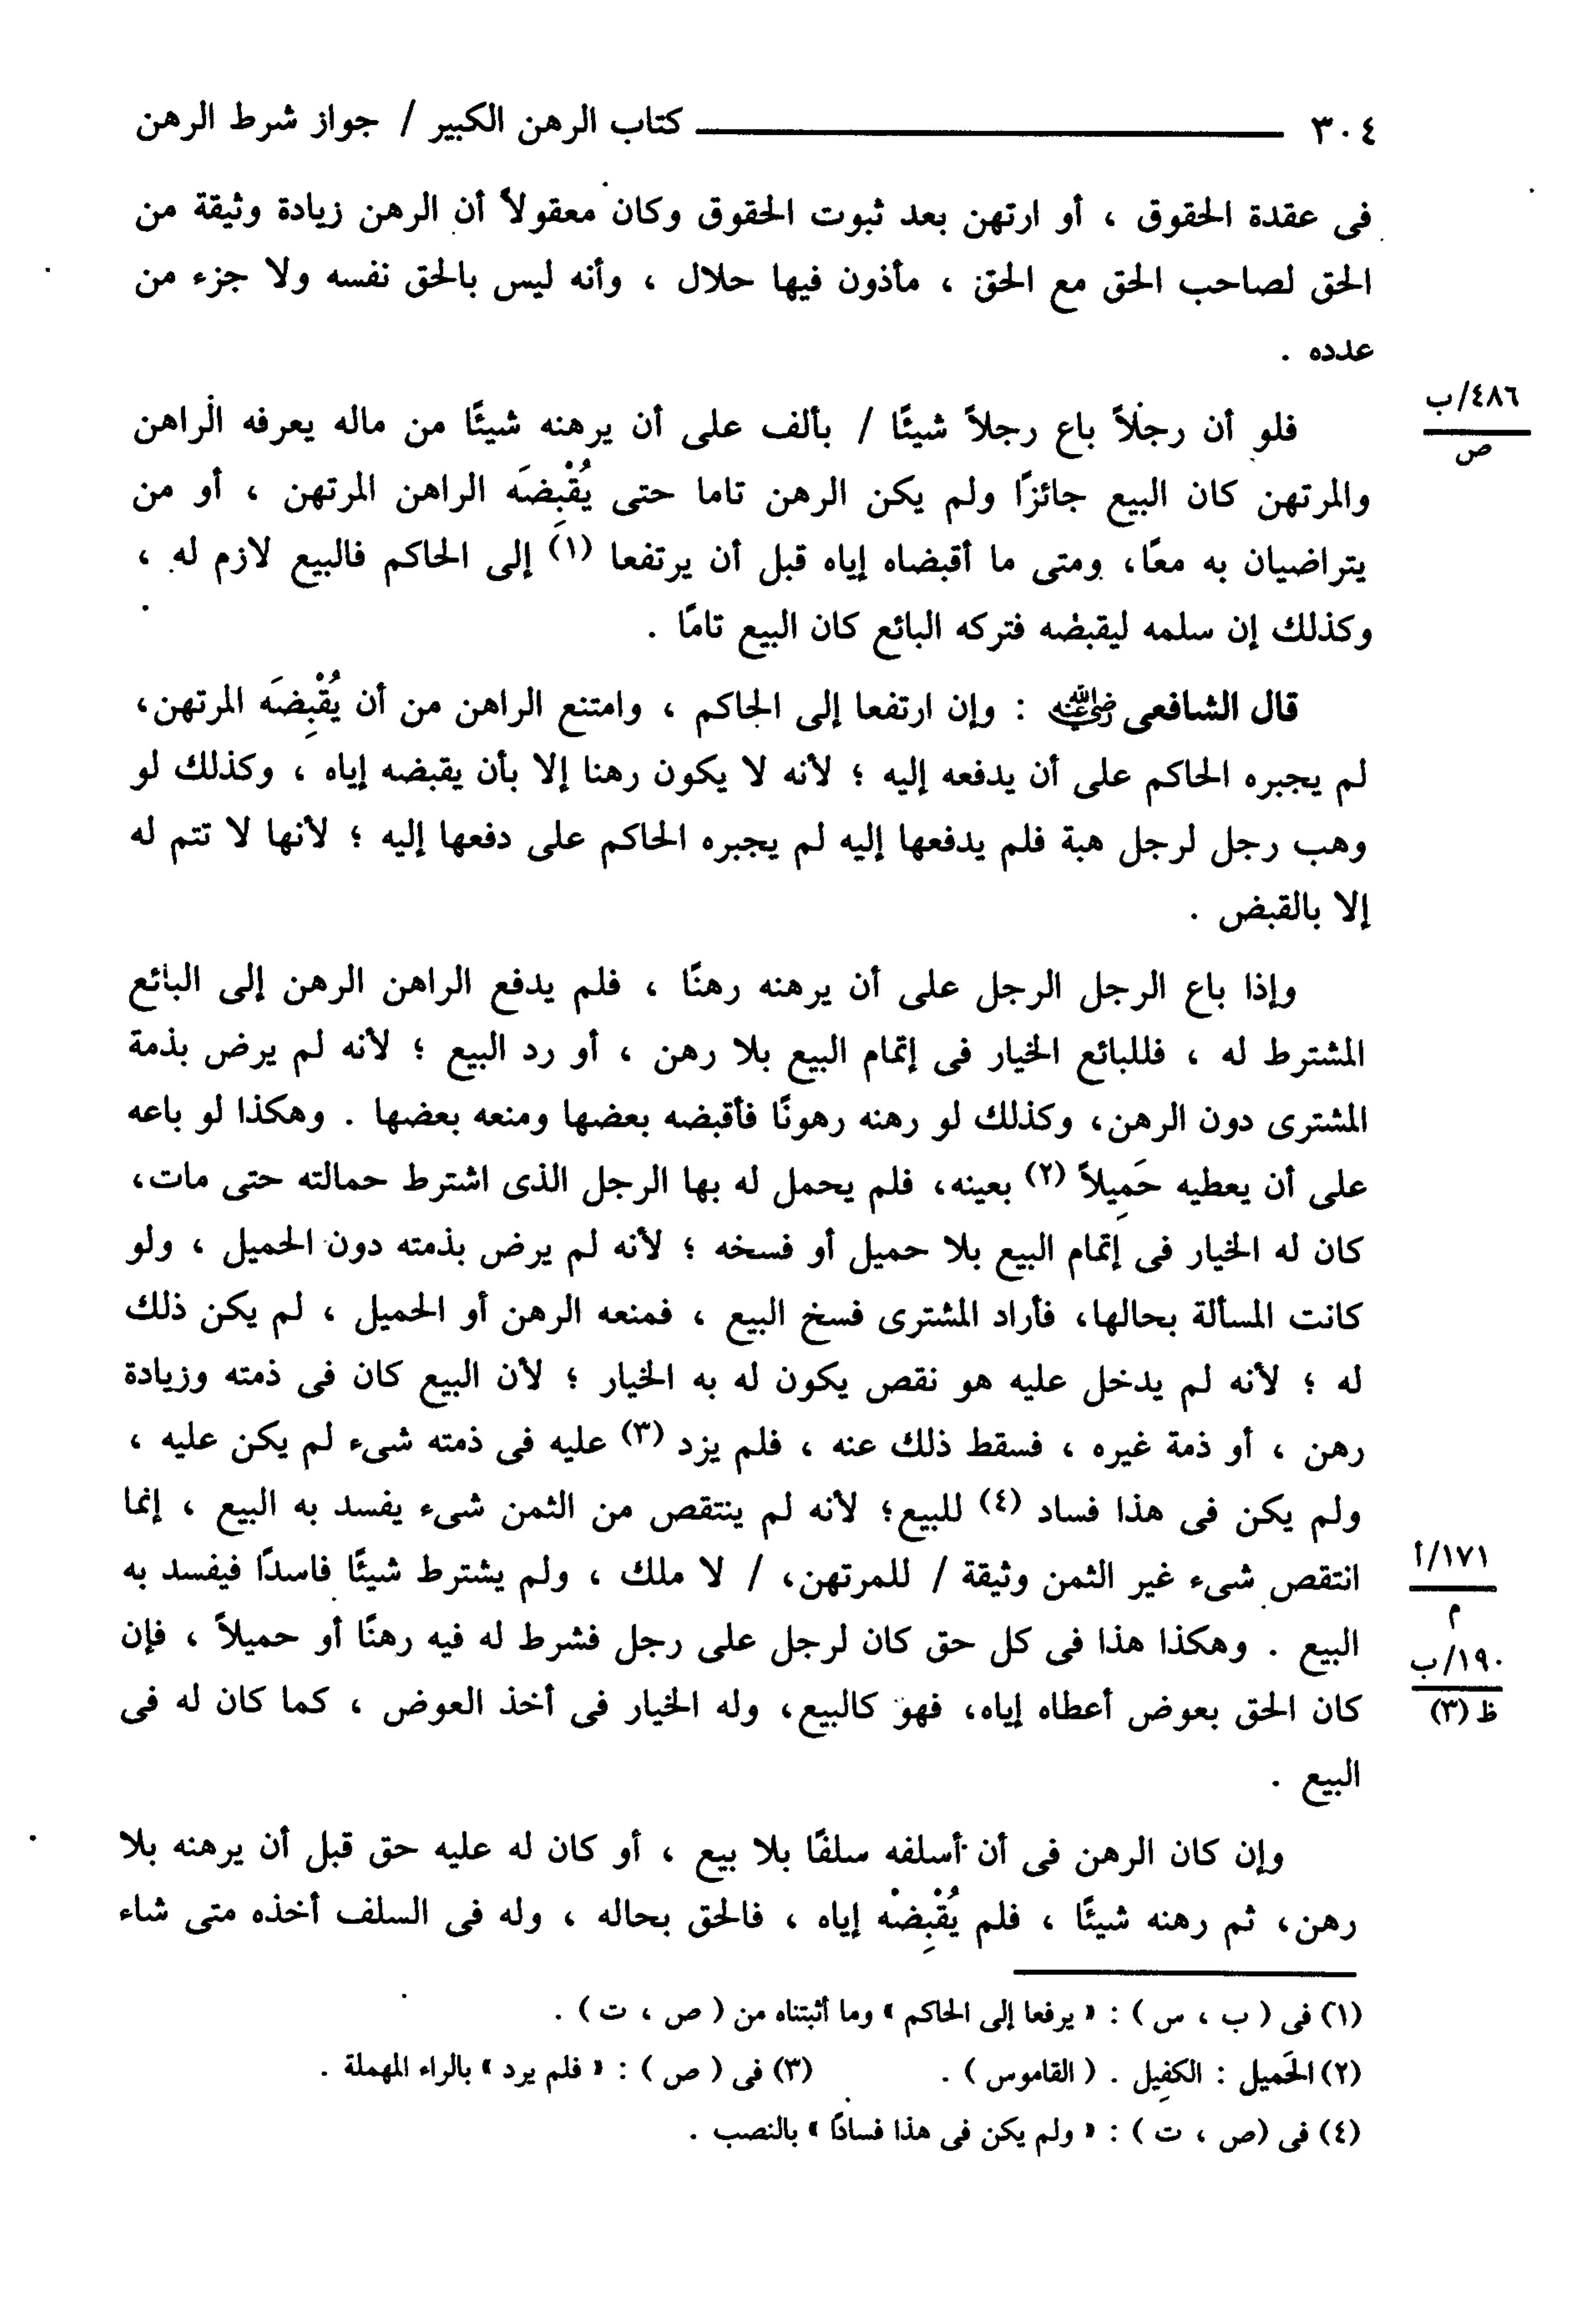 ٣٠٤ ــــــــــــــــــــ كتاب الرهن الكبير / جواز شرط الرهن
فى عقدة الحقوق ، أو ارتهن بعد ثبوت الحقوق وكان معقولاً أن الرهن زيادة وثيقة من
الحق لصاحب الحق مع الحق ، مأذون فيها حلال ، وأنه ليس بالحق نفسه ولا جزء من
عدده .
فلو أن رجلاً باع رجلاً شيئًا / بألف على أن يرهنه شيئًا من ماله يعرفه الراهن
٤٨٦/ب
ص
والمرتهن كان البيع جائزًا ولم يكن الرهن تاما حتى يُقْبِضَه الراهن المرتهن ، أو من
يتراضيان به معًا، ومتى ما أقبضاه إياه قبل أن يرتفعا (١) إلى الحاكم فالبيع لازم له ،
وكذلك إن سلمه ليقبضه فتركه البائع كان البيع تامًا .
قال الشافعى رضي الله عنه : وإن ارتفعا إلى الحاكم ، وامتنع الراهن من أن يُقْبِضَه المرتهن،
لم يجبره الحاكم على أن يدفعه إليه ؛ لأنه لا يكون رهنا إلا بأن يقبضه إياه ، وكذلك لو
وهب رجل لرجل هبة فلم يدفعها إليه لم يجبره الحاكم على دفعها إليه ؛ لأنها لا تتم له
إلا بالقبض .
وإذا باع الرجل الرجل على أن يرهنه رهنًا ، فلم يدفع الراهن الرهن إلى البائع
المشترط له ، فللبائع الخيار فى إتمام البيع بلا رهن ، أو رد البيع ؛ لأنه لم يرض بذمة
المشترى دون الرهن، وكذلك لو رهنه رهونًا فأقبضه بعضها ومنعه بعضها . وهكذا لو باعه
على أن يعطيه حَمِيلاً (٢) بعينه، فلم يحمل له بها الرجل الذى اشترط حمالته حتى مات،
كان له الخيار فى إتمام البيع بلا حميل أو فسخه ؛ لأنه لم يرض بذمته دون الحميل ، ولو
كانت المسألة بحالها، فأراد المشترى فسخ البيع ، فمنعه الرهن أو الحميل ، لم يكن ذلك
له ؛ لأنه لم يدخل عليه هو نقص يكون له به الخيار ؛ لأن البيع كان فى ذمته وزيادة
رهن ، أو ذمة غيره ، فسقط ذلك عنه ، فلم يزد (٣) عليه فى ذمته شىء لم يكن عليه ،
ولم يكن فى هذا فساد (٤) للبيع؛ لأنه لم ينتقص من الثمن شىء يفسد به البيع ، إنما
انتقص شىء غير الثمن وثيقة / للمرتهن، / لا ملك ، ولم يشترط شيئًا فاسدًا فيفسد به
١٧١/أ
م
البيع . وهكذا هذا فى كل حق كان لرجل على رجل فشرط له فيه رهنًا أو حميلاً ، فإن
١٩٠/ب
ظ (٣)
كان الحق بعوض أعطاه إياه، فهو كالبيع، وله الخيار فى أخذ العوض ، كما كان له فى
البيع .
وإن كان الرهن فى أن أسلفه سلفًا بلا بيع ، أو كان له عليه حق قبل أن يرهنه بلا
رهن، ثم رهنه شيئًا ، فلم يُقْبِضْه إياه ، فالحق بحاله ، وله فى السلف أخذه متى شاء
(١) فى ( ب ، س ) : « يرفعا إلى الحاكم » وما أثبتناه من ( ص ، ت ) .
(٢) الحَمِيل : الكفيل . ( القاموس ) . (٣) فى ( ص ) : « فلم يرد » بالراء المهملة .
(٤) فى (ص ، ت ) : « ولم يكن فى هذا فسادًا » بالنصب .